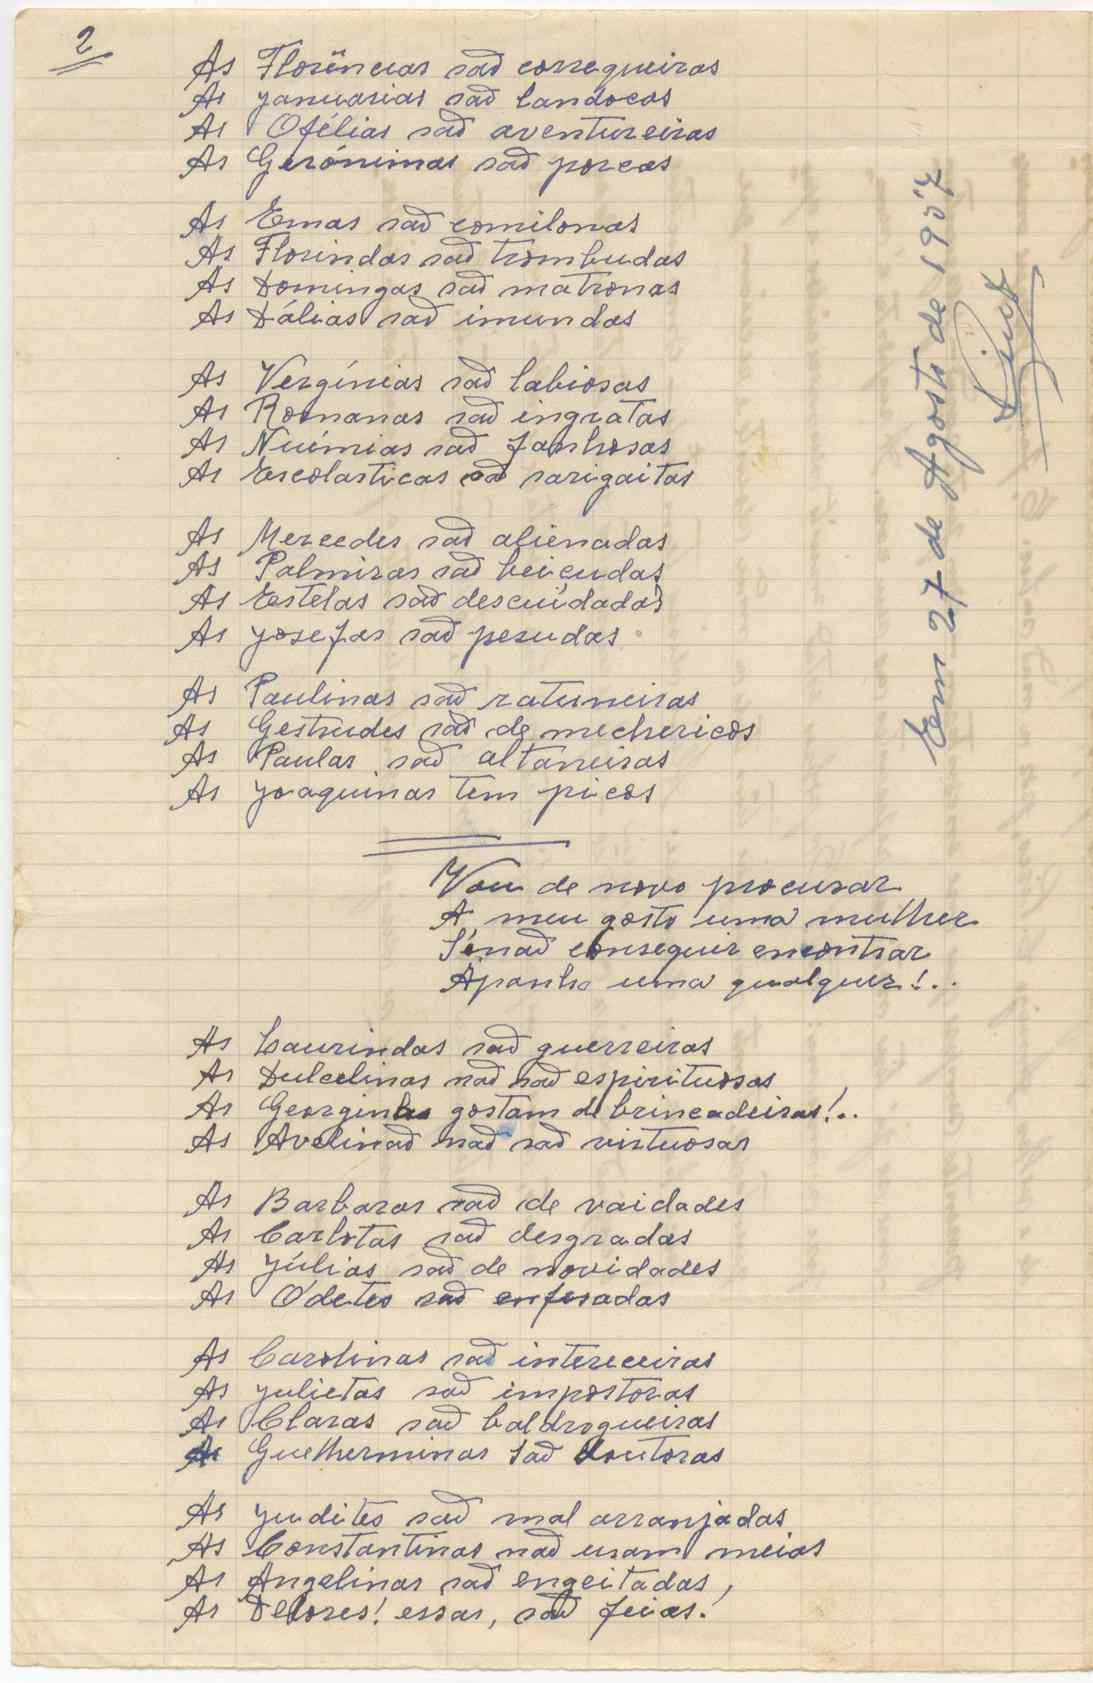 2
As Florências são corriqueiras
As Januarias são landocas
As Ofélias são aventureiras
As Gerónimas são porcas
As Emas são comilonas
As Florindas são trombudas
As Domingas são matronas
As Dálias são imundas
As Vergínias são labiosas
As Romanas são ingratas
As Nuémias são fanhosas
As Escolasticas são sarigaitas
As Mercedes são alienadas
As Palmiras são beiçudas
As Estelas são descuidadas
As Josefas são pesudas
As Paulinas são ratuneiras
As Gestrudes são de mechericos
As Paulas são altaneiras
As Joaquinas tem picos
Vou de novo procurar
A meu gosto uma mulher
Se não conseguir encontrar
Apanho uma qualquer!..
As Laurindas são guerreiras
As Dulcelinas não são espirituosas
As Georginas gostam de brincadeiras!..
As Avelinas não são virtuosas
As Barbaras são de vaidades
As Carlotas são desgradas
As Júlias são de novidades
As Odetes são enfusadas
As Carolinas são intereceiras
As Julietas são impostoras
As Claras são baldrogueiras
As Guelherminas são doutoras
As Judites são mal arranjadas
As Constantinas não usam meias
As Angelinas são engeitadas,
As Delores! essas, são feias!
Em 27 de Agosto de 1957